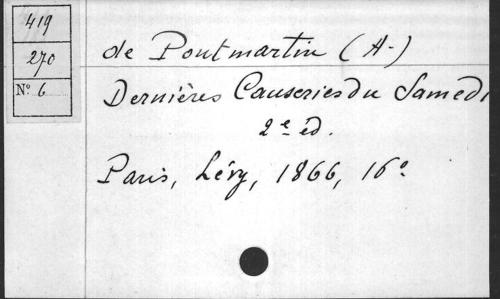 419
270
Nº 6
de Pontmartin (A-)
Dernières Causeries du Samedi
2e éd.
Paris, Lévy, 1866, 16º